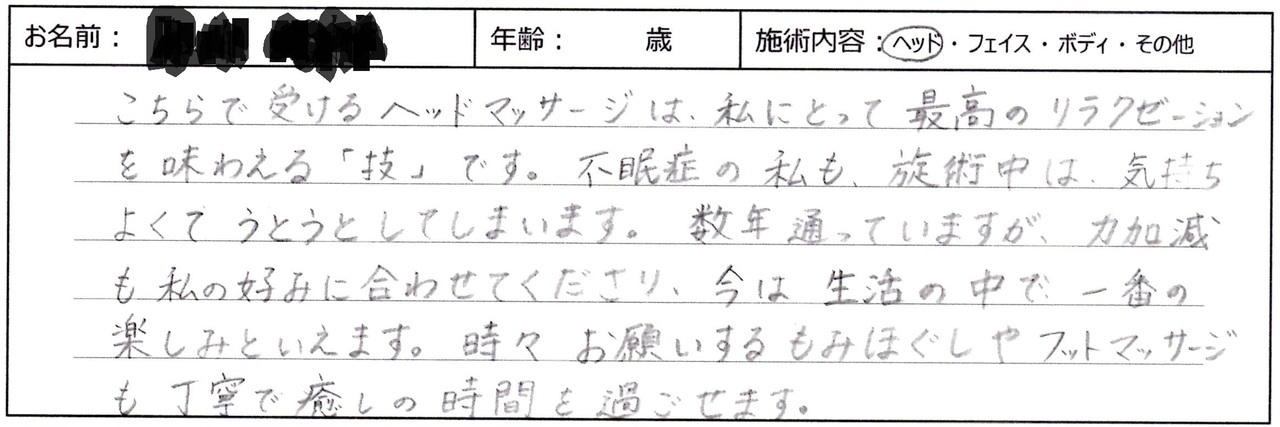 お名前： 年齢： 歳 施術内容：ヘッド・フェイス・ボディ・その他
こちらで受けるヘッドマッサージは、私にとって最高のリラクゼーション
を味わえる「技」です。不眠症の私も、施術中は、気持ち
よくてうとうとしてしまいます。数年通っていますが、力加減
も私の好みに合わせてくださり、今は生活の中で一番の
楽しみといえます。時々お願いするもみほぐしやフットマッサージ
も丁寧で癒しの時間を過ごせます。